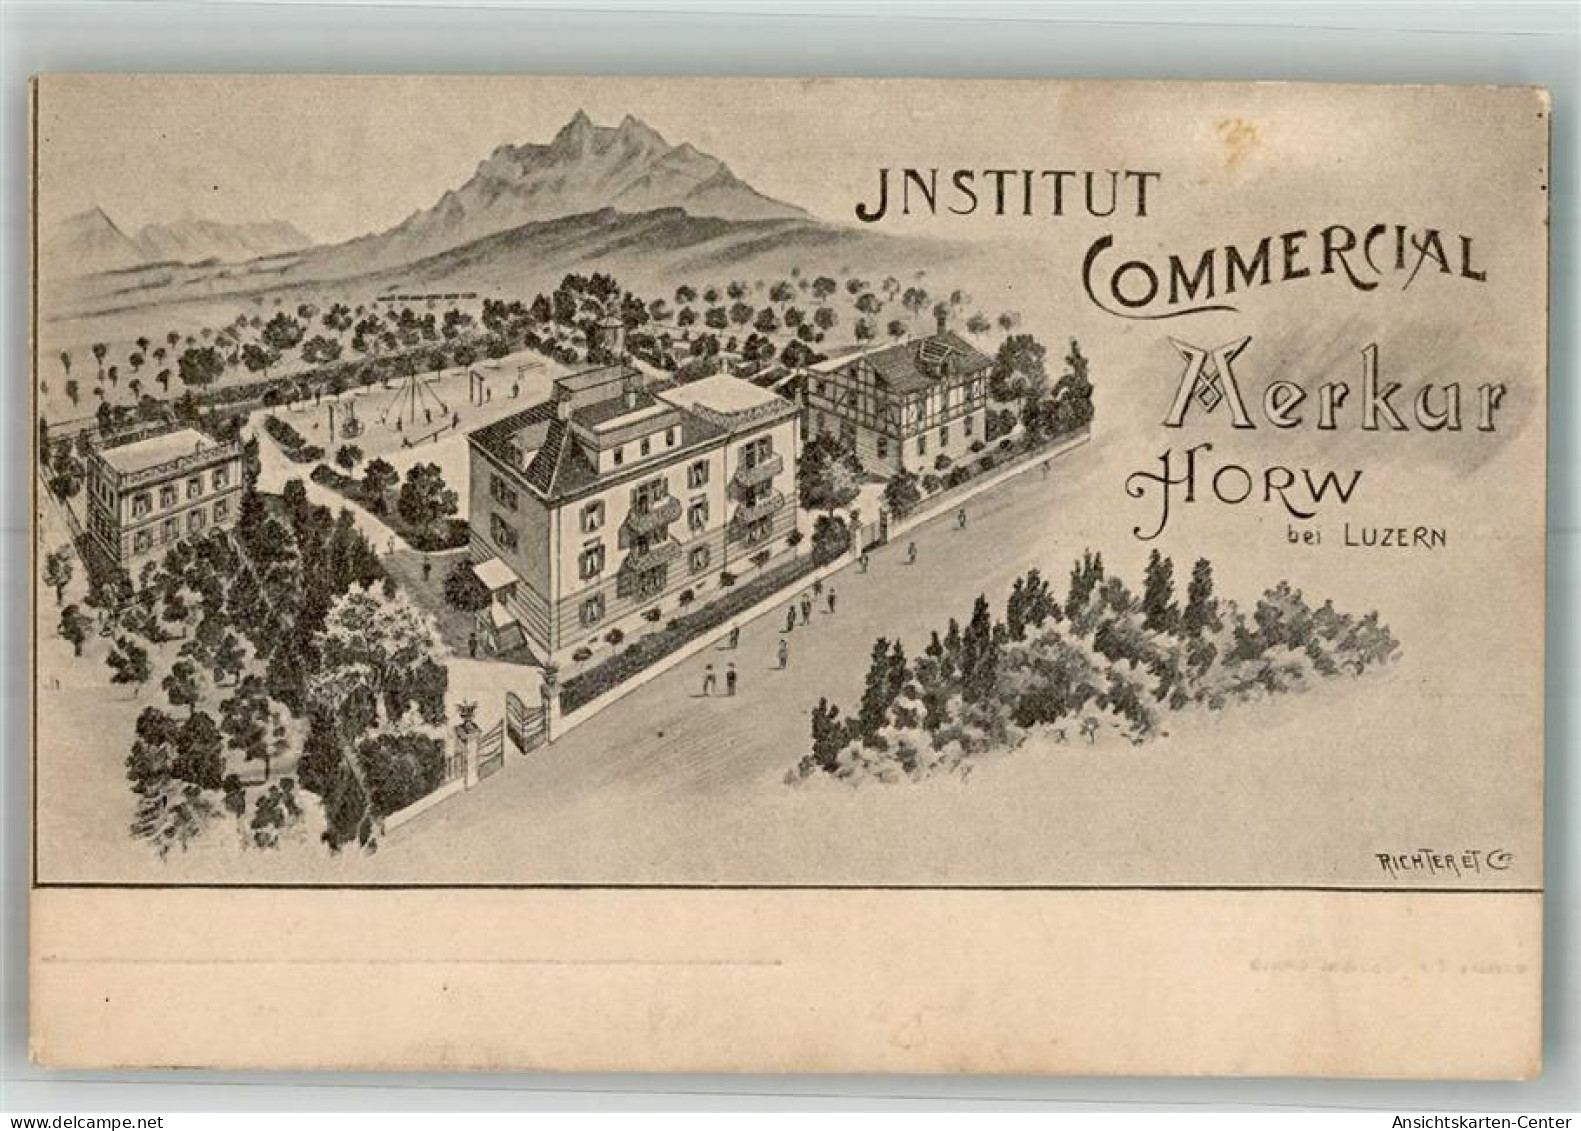 JNSTITUT
COMMERCIAL
Merkur
HORW
bei LUZERN
RICHTER ET Co
Ansichtskarten-Center